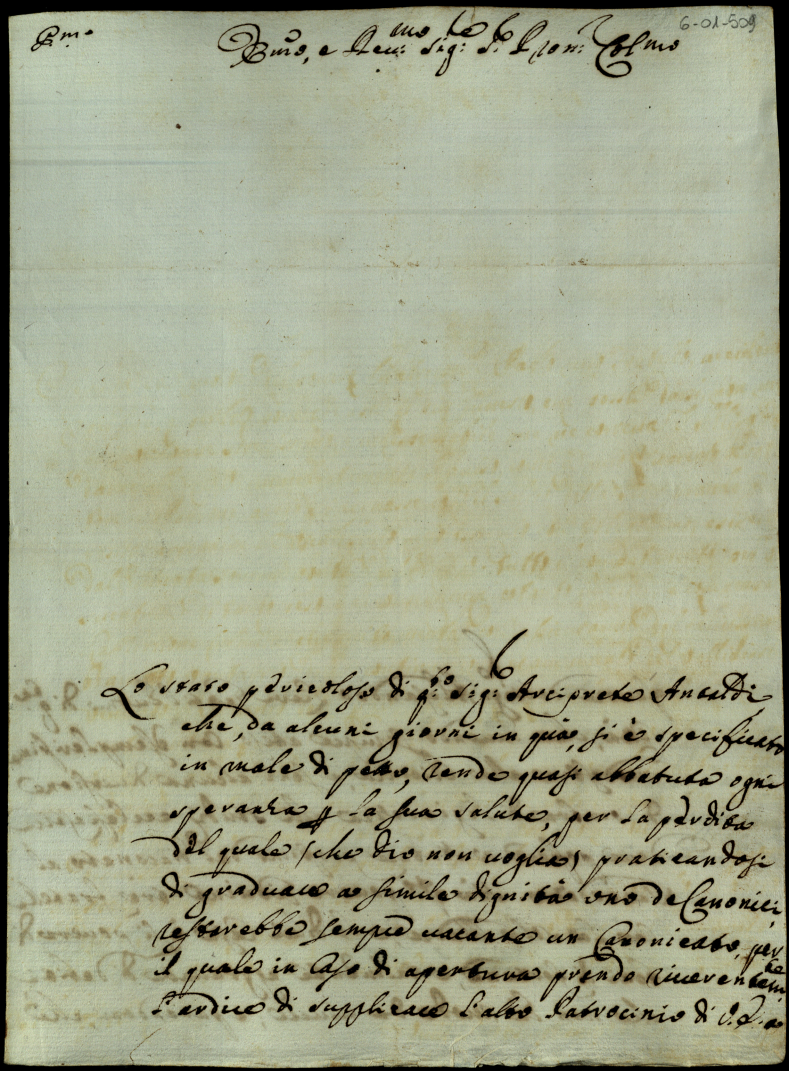 6-01-509
Em.o
Emo, e Reu:mo Sig:re P.ron: Colmo
Lo stato pericoloso di q.sto Sig:r Arciprete Ansaldi
che, da alcuni giorni in quà, si è specificato
in male di petto, rende quasi abbatuta ogni
speranza p la sua salute, per la perdita
del quale (che Dio non voglia) praticandosi
di graduare a simile dignità uno de Canonici,
restarebbe sempre uacante un Canonicato, per
il quale in caso di apertura prendo riuerentem.te
l'ardire di supplicare l'alto Patrocinio di